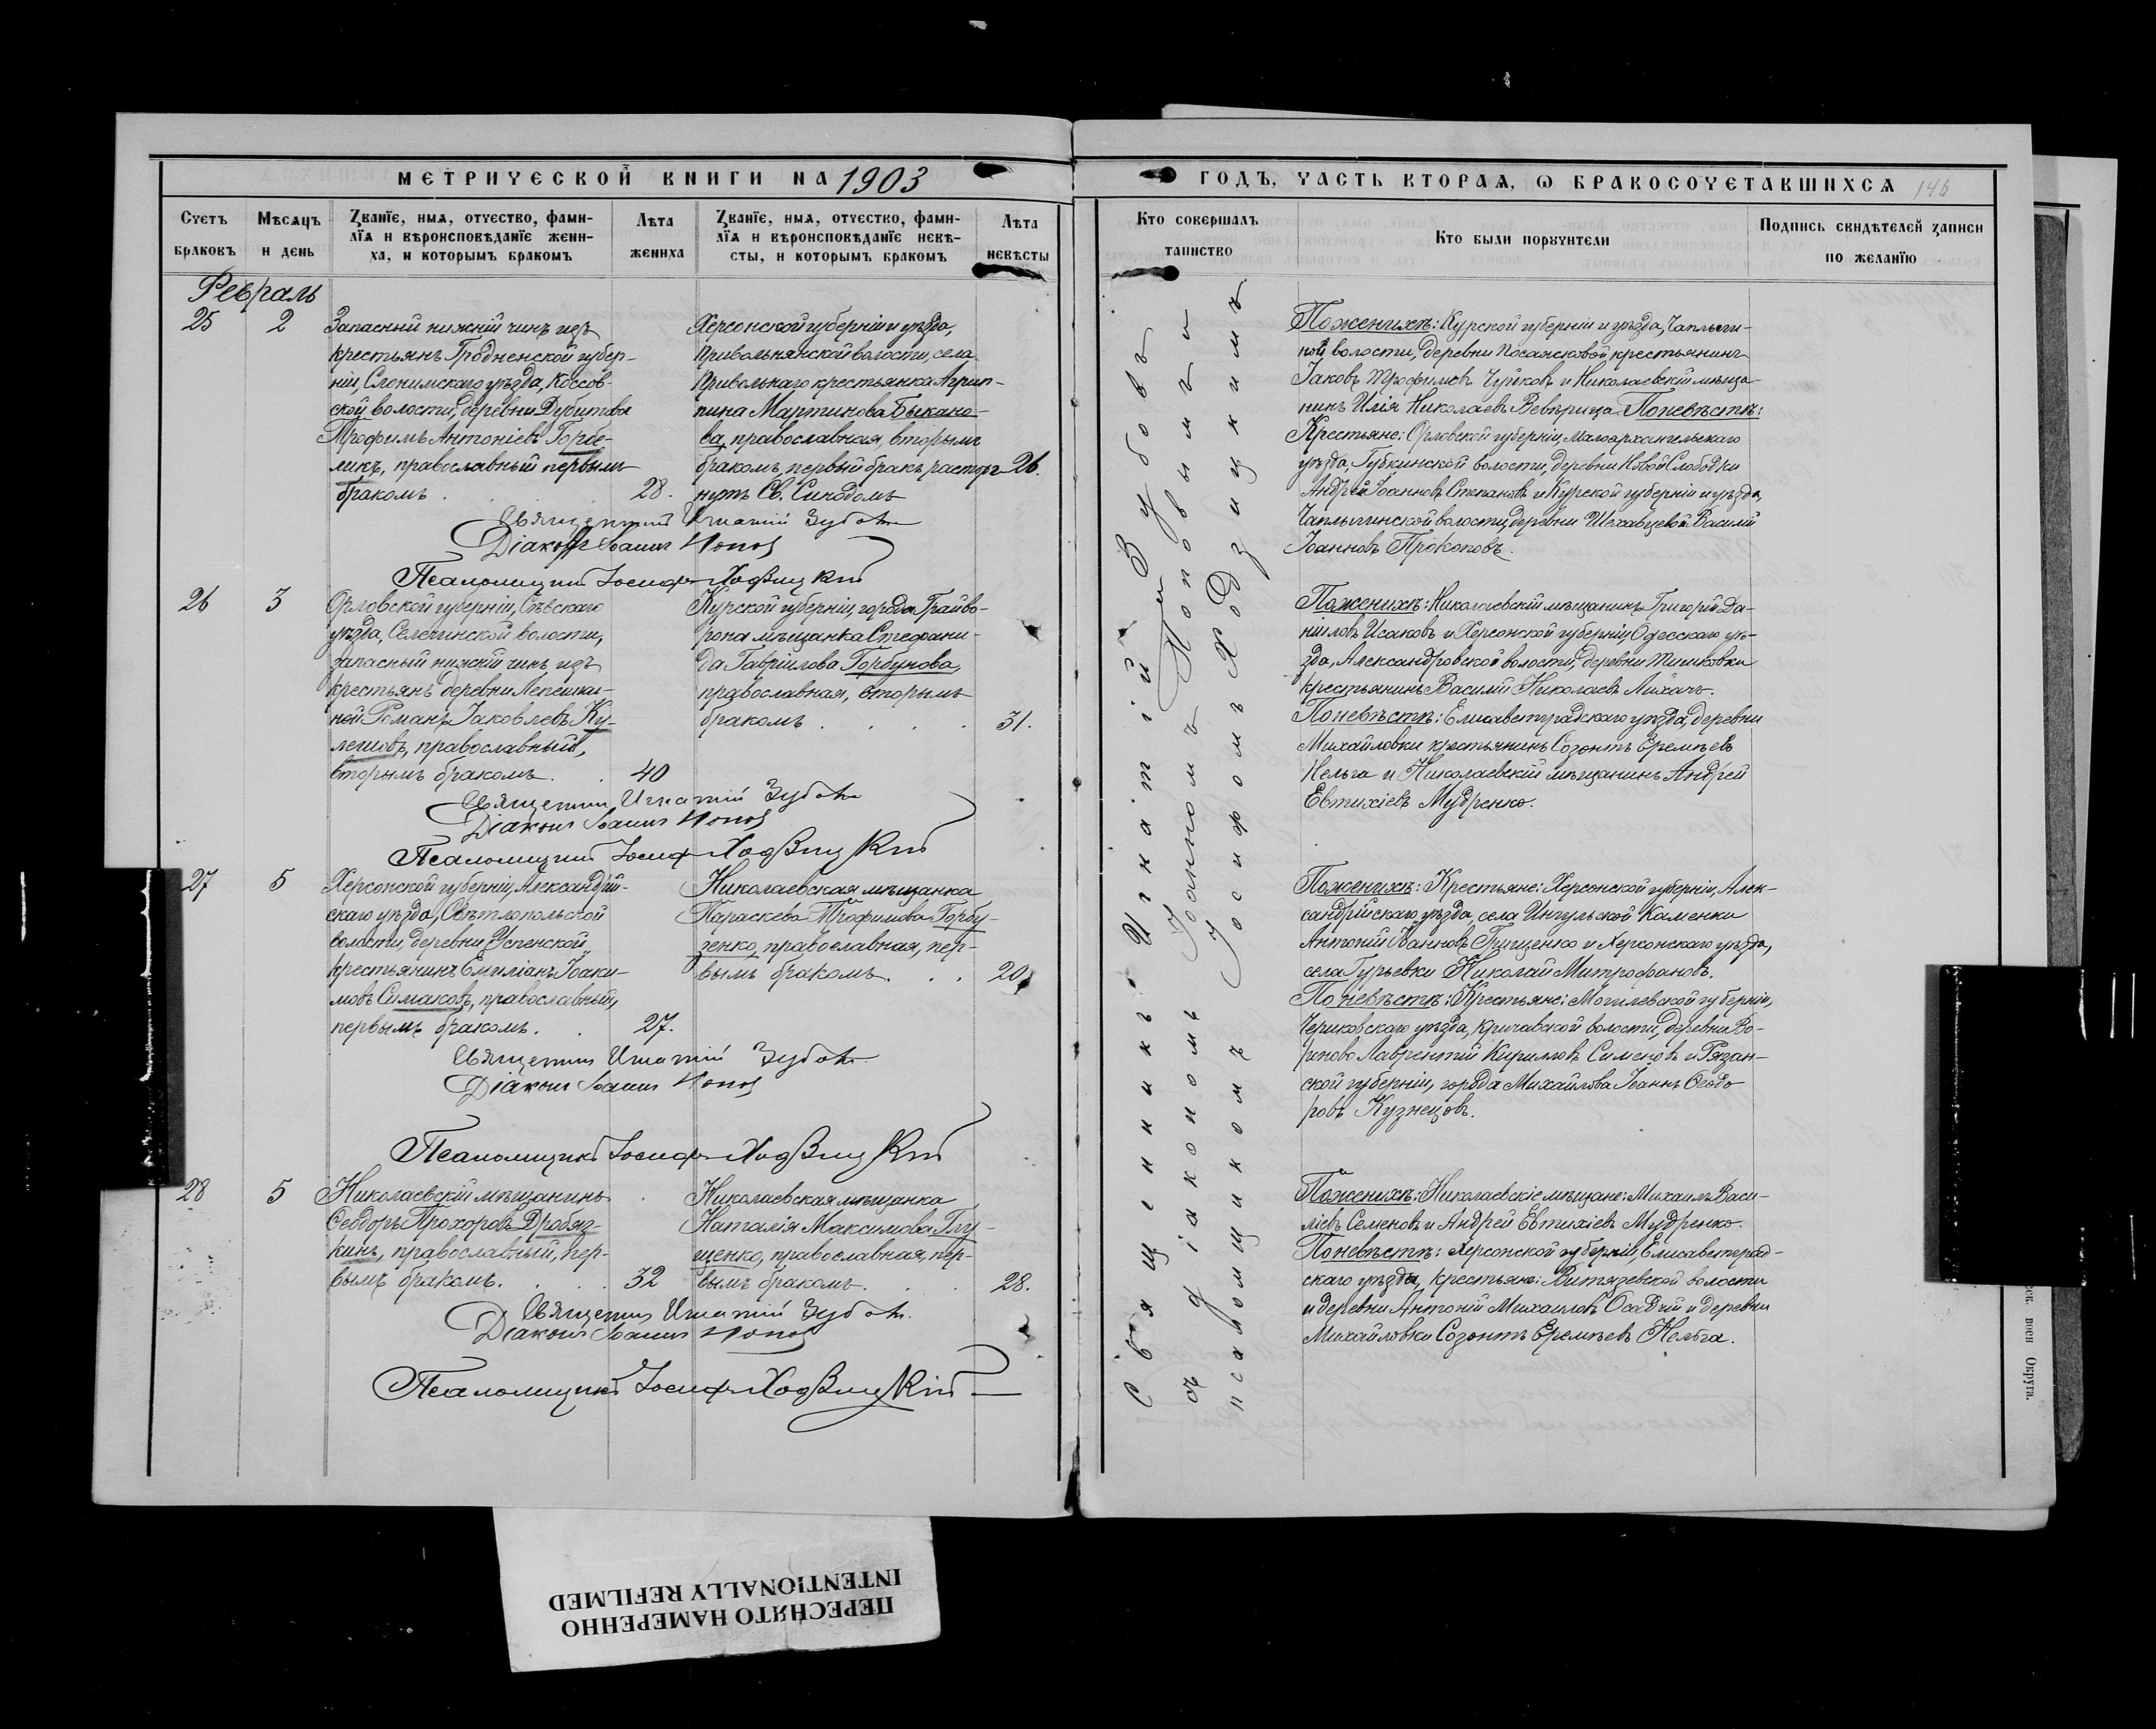 МЕТРИЧЕСКОЙ КНИГИ НА 1903
ГОДЪ, ЧАСТЬ ВТОРАЯ, Ѡ БРАКОСОЧЕТАВШИХСЯ 146
Счетъ браковъ
Мѣсяцъ и день
Званіе, имя, отчество, фами-
лія и вѣроисповѣданіе жени-
ха, и которымъ бракомъ
Лѣта жениха
Званіе, имя, отчество, фами-
лія и вѣроисповѣданіе невѣ-
сты, и которымъ бракомъ
Лѣта невѣсты
Кто совершалъ таинство
Кто были поручители
Подпись свидѣтелей записи по желанію
Февраль
25
2
Запасный нижній чинъ изъ
крестьянъ Гродненской губер-
ніи, Слонимскаго уѣзда, Коссов-
ской волости, деревни Дубитова
Трофимъ Антоніевъ Горбе-
ликъ, православный первымъ
бракомъ.
28.
Херсонской губерніи и уѣзда,
Привольнянской волости, села
Привольнаго крестьянка Агрип-
пина Мартинова Быкано-
ва, православная, вторымъ
бракомъ, первый бракъ расторг-
нутъ Св. Синодомъ
26.
Священникъ Игнатій Зубовъ
Діаконъ Іоаннъ Поповъ
Псаломщикъ Іосифъ Ходзицкій
26
3
Орловской губерніи, Сѣвскаго
уѣзда, Селечинской волости,
запасный нижній чинъ изъ
крестьянъ деревни Лепешки-
ной Романъ Іаковлевъ Ку-
лешовъ, православный,
вторымъ бракомъ.
40
Курской губерніи, города Грайво-
рона мѣщанка Стефани-
да Гавріилова Горбунова,
православная, вторымъ
бракомъ
31.
Священникъ Игнатій Зубовъ
Діаконъ Іоаннъ Поповъ
Псаломщикъ Іосифъ Ходзицкій
27
5
Херсонской губерніи, Александрій-
скаго уѣзда, Свѣтлопольской
волости, деревни Успенской,
крестьянинъ Емиліанъ Іоаки-
мовъ Симаковъ, православный,
первымъ бракомъ.
27.
Николаевская мѣщанка
Параскева Трофимова Горбу-
зенко, православная, пер-
вымъ бракомъ.
20
Священникъ Игнатій Зубовъ
Діаконъ Іоаннъ Поповъ
Псаломщикъ Іосифъ Ходзицкій
28
5
Николаевскій мѣщанинъ
Ѳеодоръ Прохоровъ Дробяз-
кинъ, православный, пер-
вымъ бракомъ.
32
Николаевская мѣщанка
Наталія Максимова Глу-
щенко, православная, пер-
вымъ бракомъ.
28.
Священникъ Игнатій Зубовъ.
Діаконъ Іоаннъ Поповъ
Псаломщикъ Іосифъ Ходзицкій
Священникъ Игнатій Зубовъ
съ діакономъ Іоанномъ Поповымъ и
псаломщикомъ Іосифомъ Ходзицкимъ
По женихѣ: Курской губерніи и уѣзда, Чаплыги-
ной волости, деревни крестьянинъ
Іаковъ Трофимовъ Чуйковъ и Николаевскій мѣща-
нинъ Илія Николаевъ Веверица. По невѣстѣ:
Крестьяне: Орловской губерніи, Малоархангельскаго
уѣзда, Губкинской волости, деревни Новой Слободки
Андрей Іоанновъ Степановъ и Курской губерніи и уѣзда,
Чаплыгинской волости, деревни Шеховцевой Василій
Іоанновъ Прокоповъ.
По женихѣ: Николаевскій мѣщанинъ Григорій Да-
ніиловъ Исаковъ и Херсонской губерніи, Одесскаго уѣ-
зда, Александровской волости, деревни Тишковки
крестьянинъ Василій Николаевъ Лихачъ.
По невѣстѣ: Елисаветградскаго уѣзда, деревни
Михайловки крестьянинъ Созонтъ Еремѣевъ
Нельга и Николаевскій мѣщанинъ Андрей
Евтихіевъ Мудренко.
По женихѣ: Крестьяне: Херсонской губерніи, Алек-
сандрійскаго уѣзда, села Ингульской Каменки
Антоній Іоанновъ Грищенко и Херсонскаго уѣзда,
села Гурьевки Николай Митрофановъ.
По невѣстѣ: Крестьяне: Могилевской губерніи,
Чериковскаго уѣзда, Кричавской волости, деревни Во-
роново Лаврентій Кирилловъ Сименовъ и Рязан-
ской губерніи, города Михайлова Іоаннъ Ѳеодо-
ровъ Кузнецовъ.
По женихѣ: Николаевскіе мѣщане: Михаилъ Васи-
ліевъ Семеновъ и Андрей Евтихіевъ Мудренко.
По невѣстѣ: Херсонской губерніи, Елисаветград-
скаго уѣзда, крестьяне: Витязевской волости
и деревни Антоній Михаиловъ Осадчій и деревни
Михайловки Созонтъ Еремѣевъ Нельга.
воен Округа.
ПЕРЕСНЯТО НАМЕРЕННО
INTENTIONALLY REFILMED